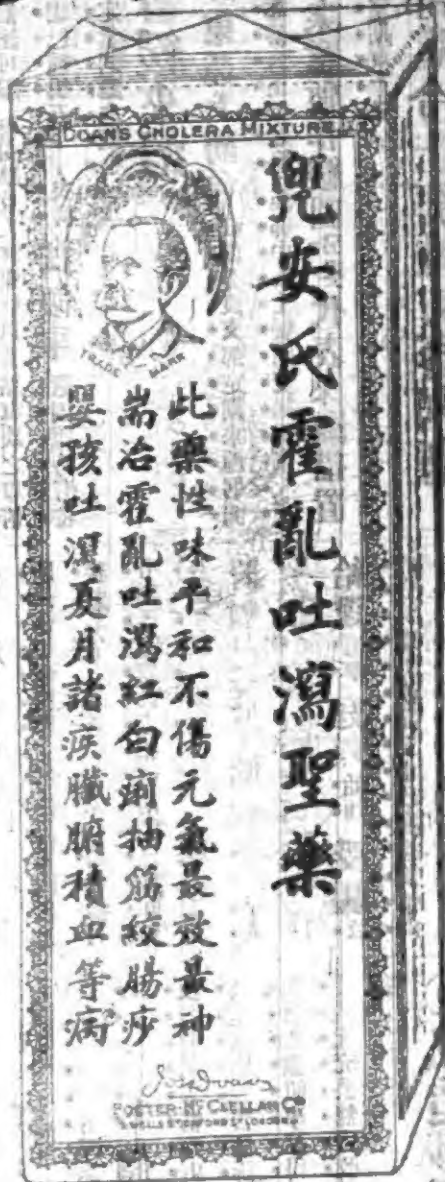 DOAN'S CHOLERA MIXTURE
TRADE MARK
兜安氏霍亂吐瀉聖藥
此藥性味平和不傷元氣最效最神
耑治霍亂吐瀉紅白痢抽筋絞腸痧
嬰孩吐瀉夏月諸疾臟腑積血等病
FOSTER-McCLELLAN Co